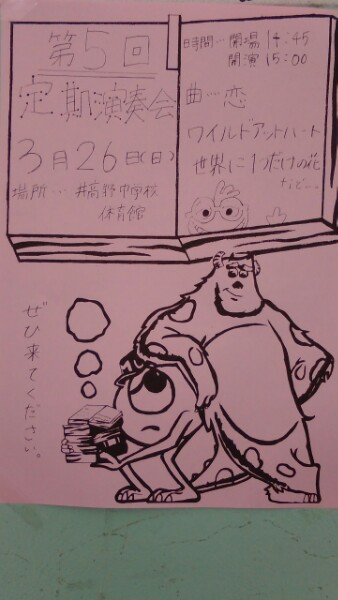 第5回
定期演奏会
3月26日(日)
場所… 井高野中学校
体育館
時間−開場 14:45
開演 15:00
曲…恋
ワイルドアットハート
世界に1つだけの花
など…
ぜひ来てください。